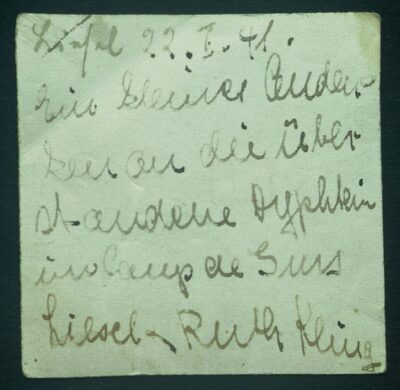 22. I. 41.
Ein kleines Anden-
ken an die über-
standene Dyphterie
im Camp de Gurs
Liesel - Ruth Kling